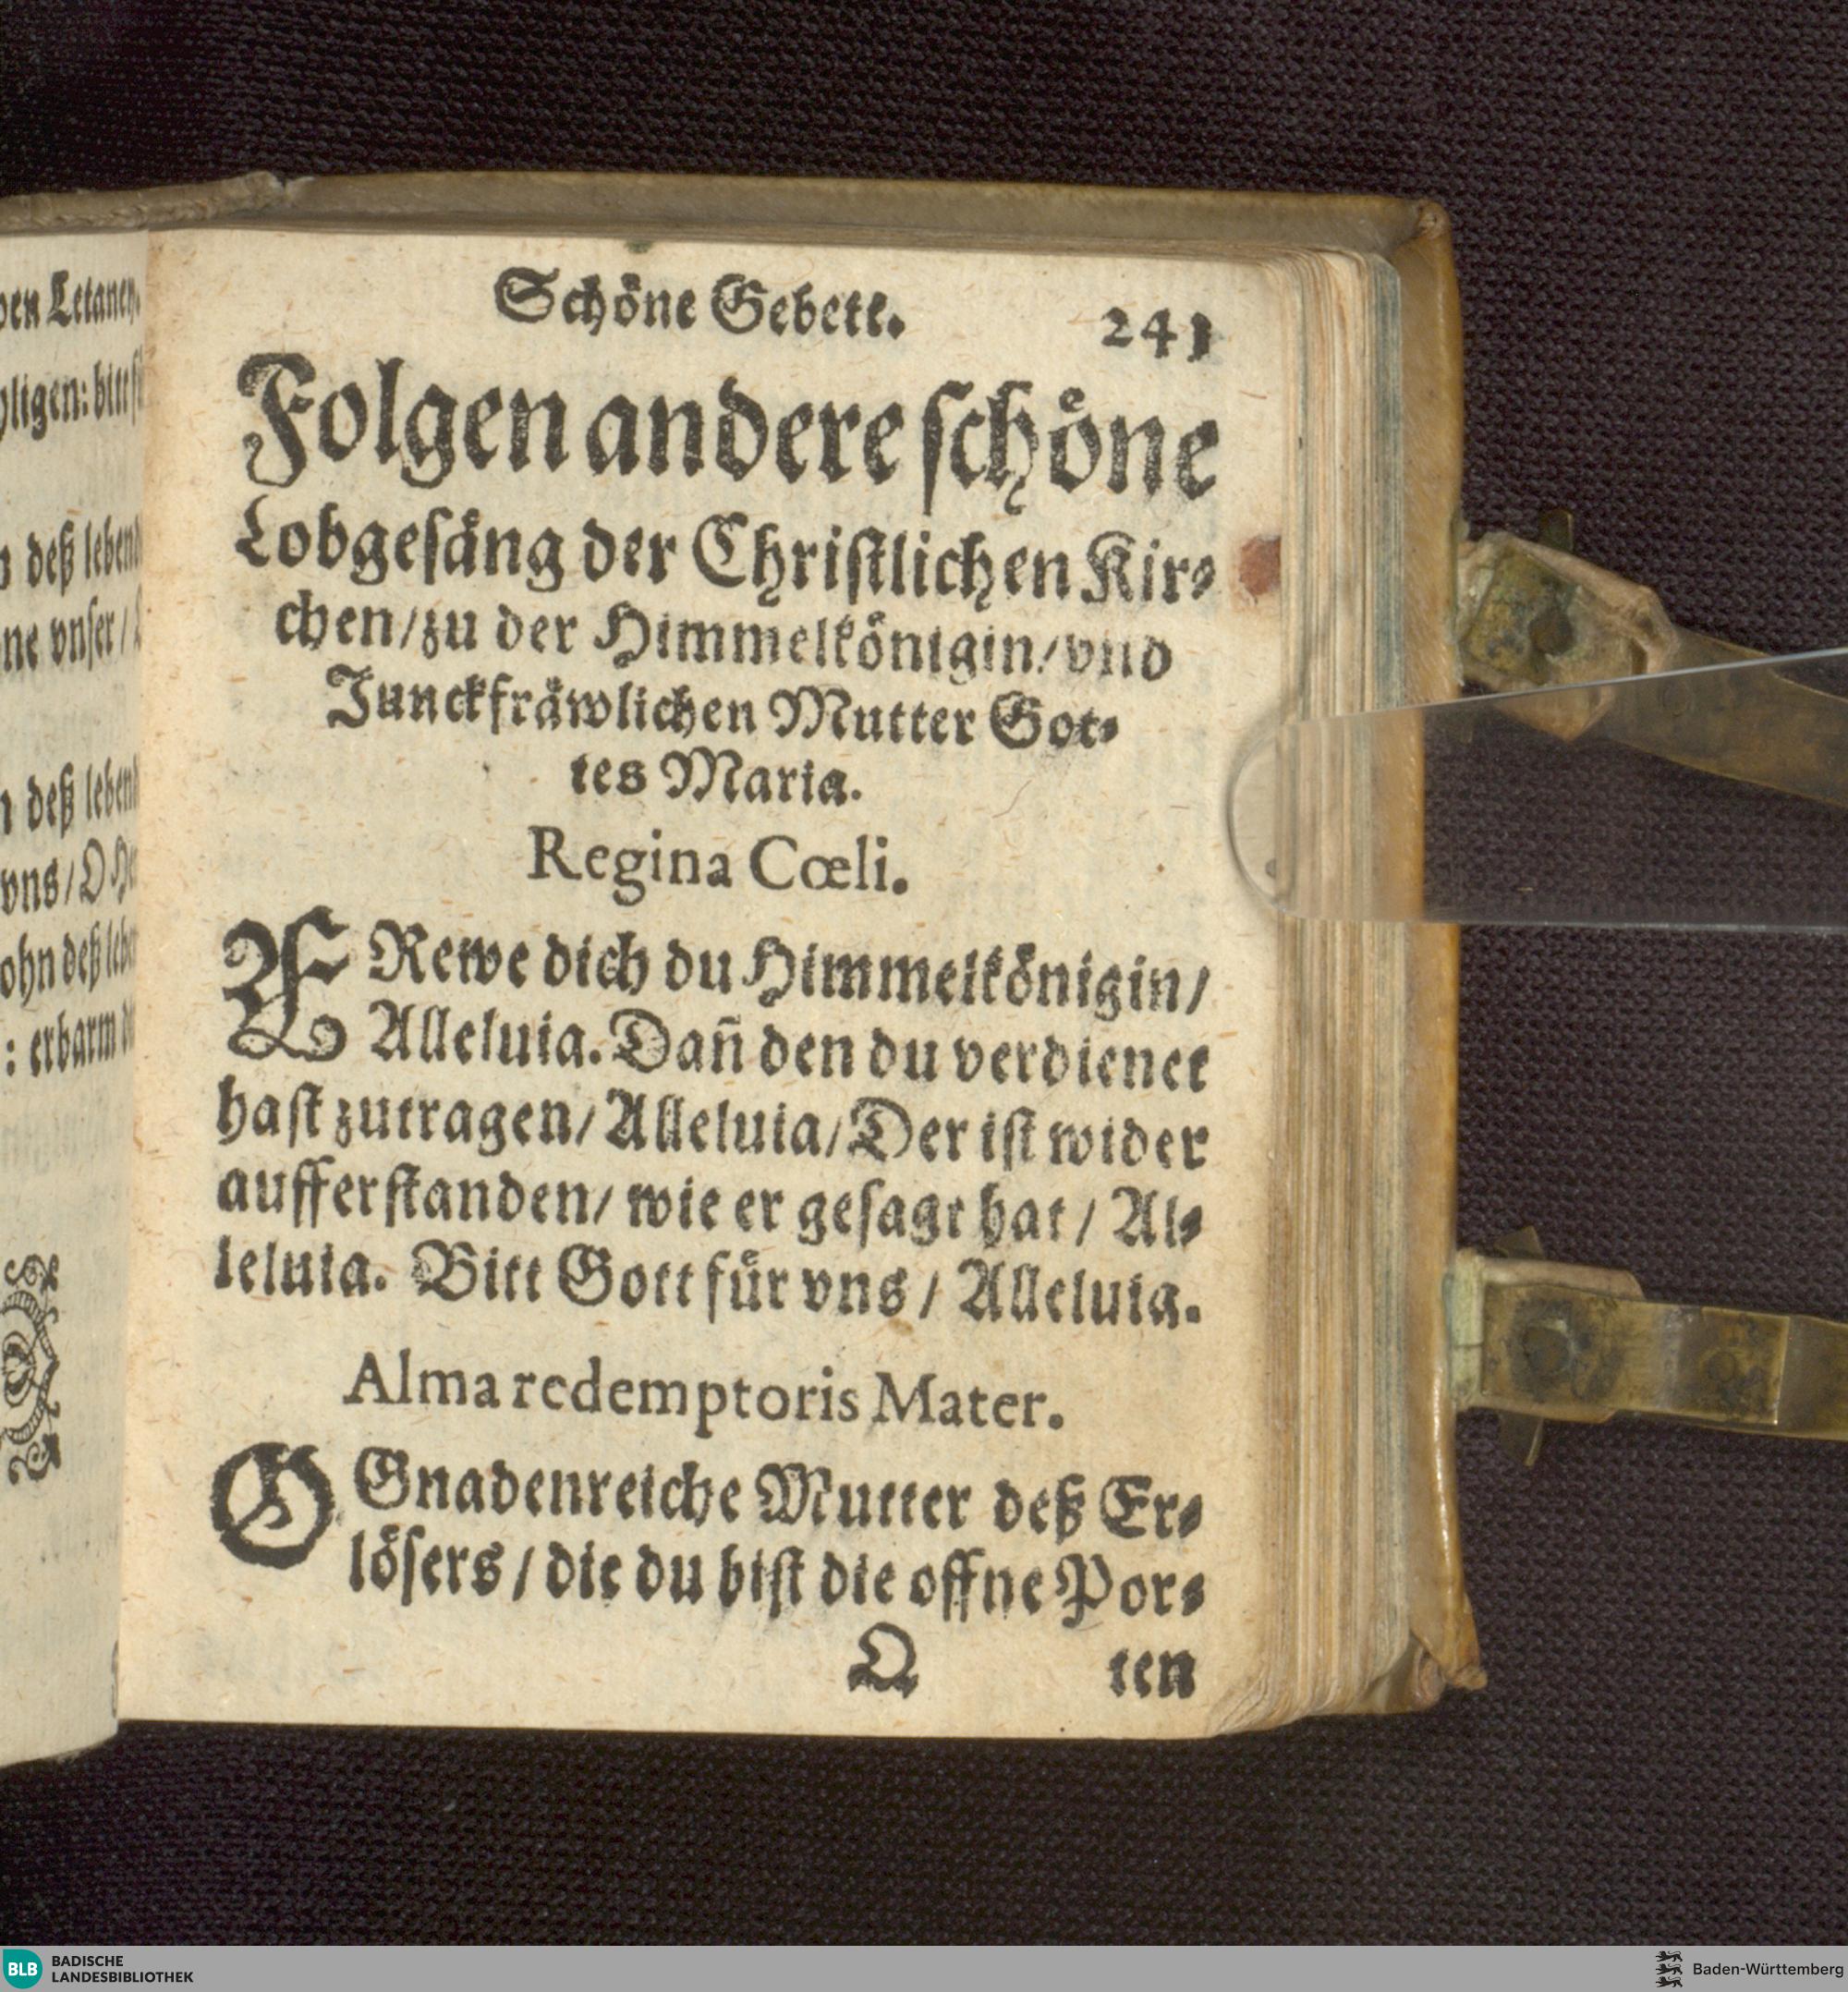 den Letaney.
Schöne Gebett. 241
Folgen andere schöne
Lobgesäng der Christlichen Kir⸗
chen/zu der Himmelkönigin/vnd
Junckfräwlichen Mutter Got⸗
tes Maria.
Regina Cœli.
FRewe dich du Himmelkönigin/
Alleluia. Dañ den du verdienet
hast zutragen/ Alleluia/ Der ist wider
aufferstanden/ wie er gesagt hat / Al⸗
leluia. Bitt Gott für vns / Alleluia.
Alma redemptoris Mater.
O Gnadenreiche Mutter deß Er⸗
lösers / die du bist die offne Por⸗
Q ten
deß
vnser /
deß
vns / O
deß
: erbarm
BLB BADISCHE
LANDESBIBLIOTHEK
Baden-Württemberg